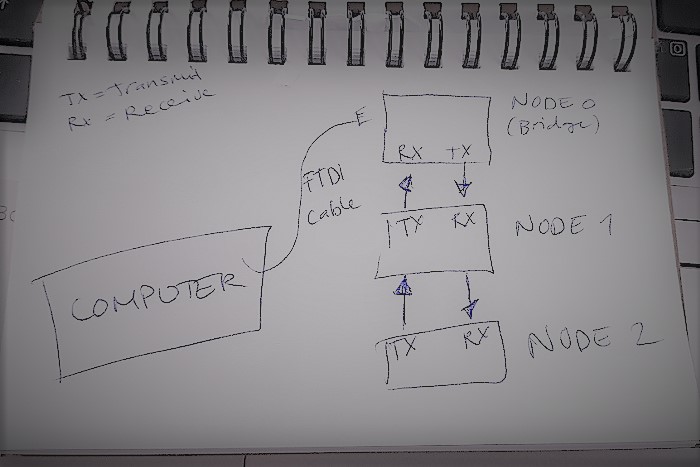 TX = Transmit
RX = Receive
NODE 0
(Bridge)
RX TX
FTDI
Cable
TX RX
NODE 1
COMPUTER
TX RX
NODE 2